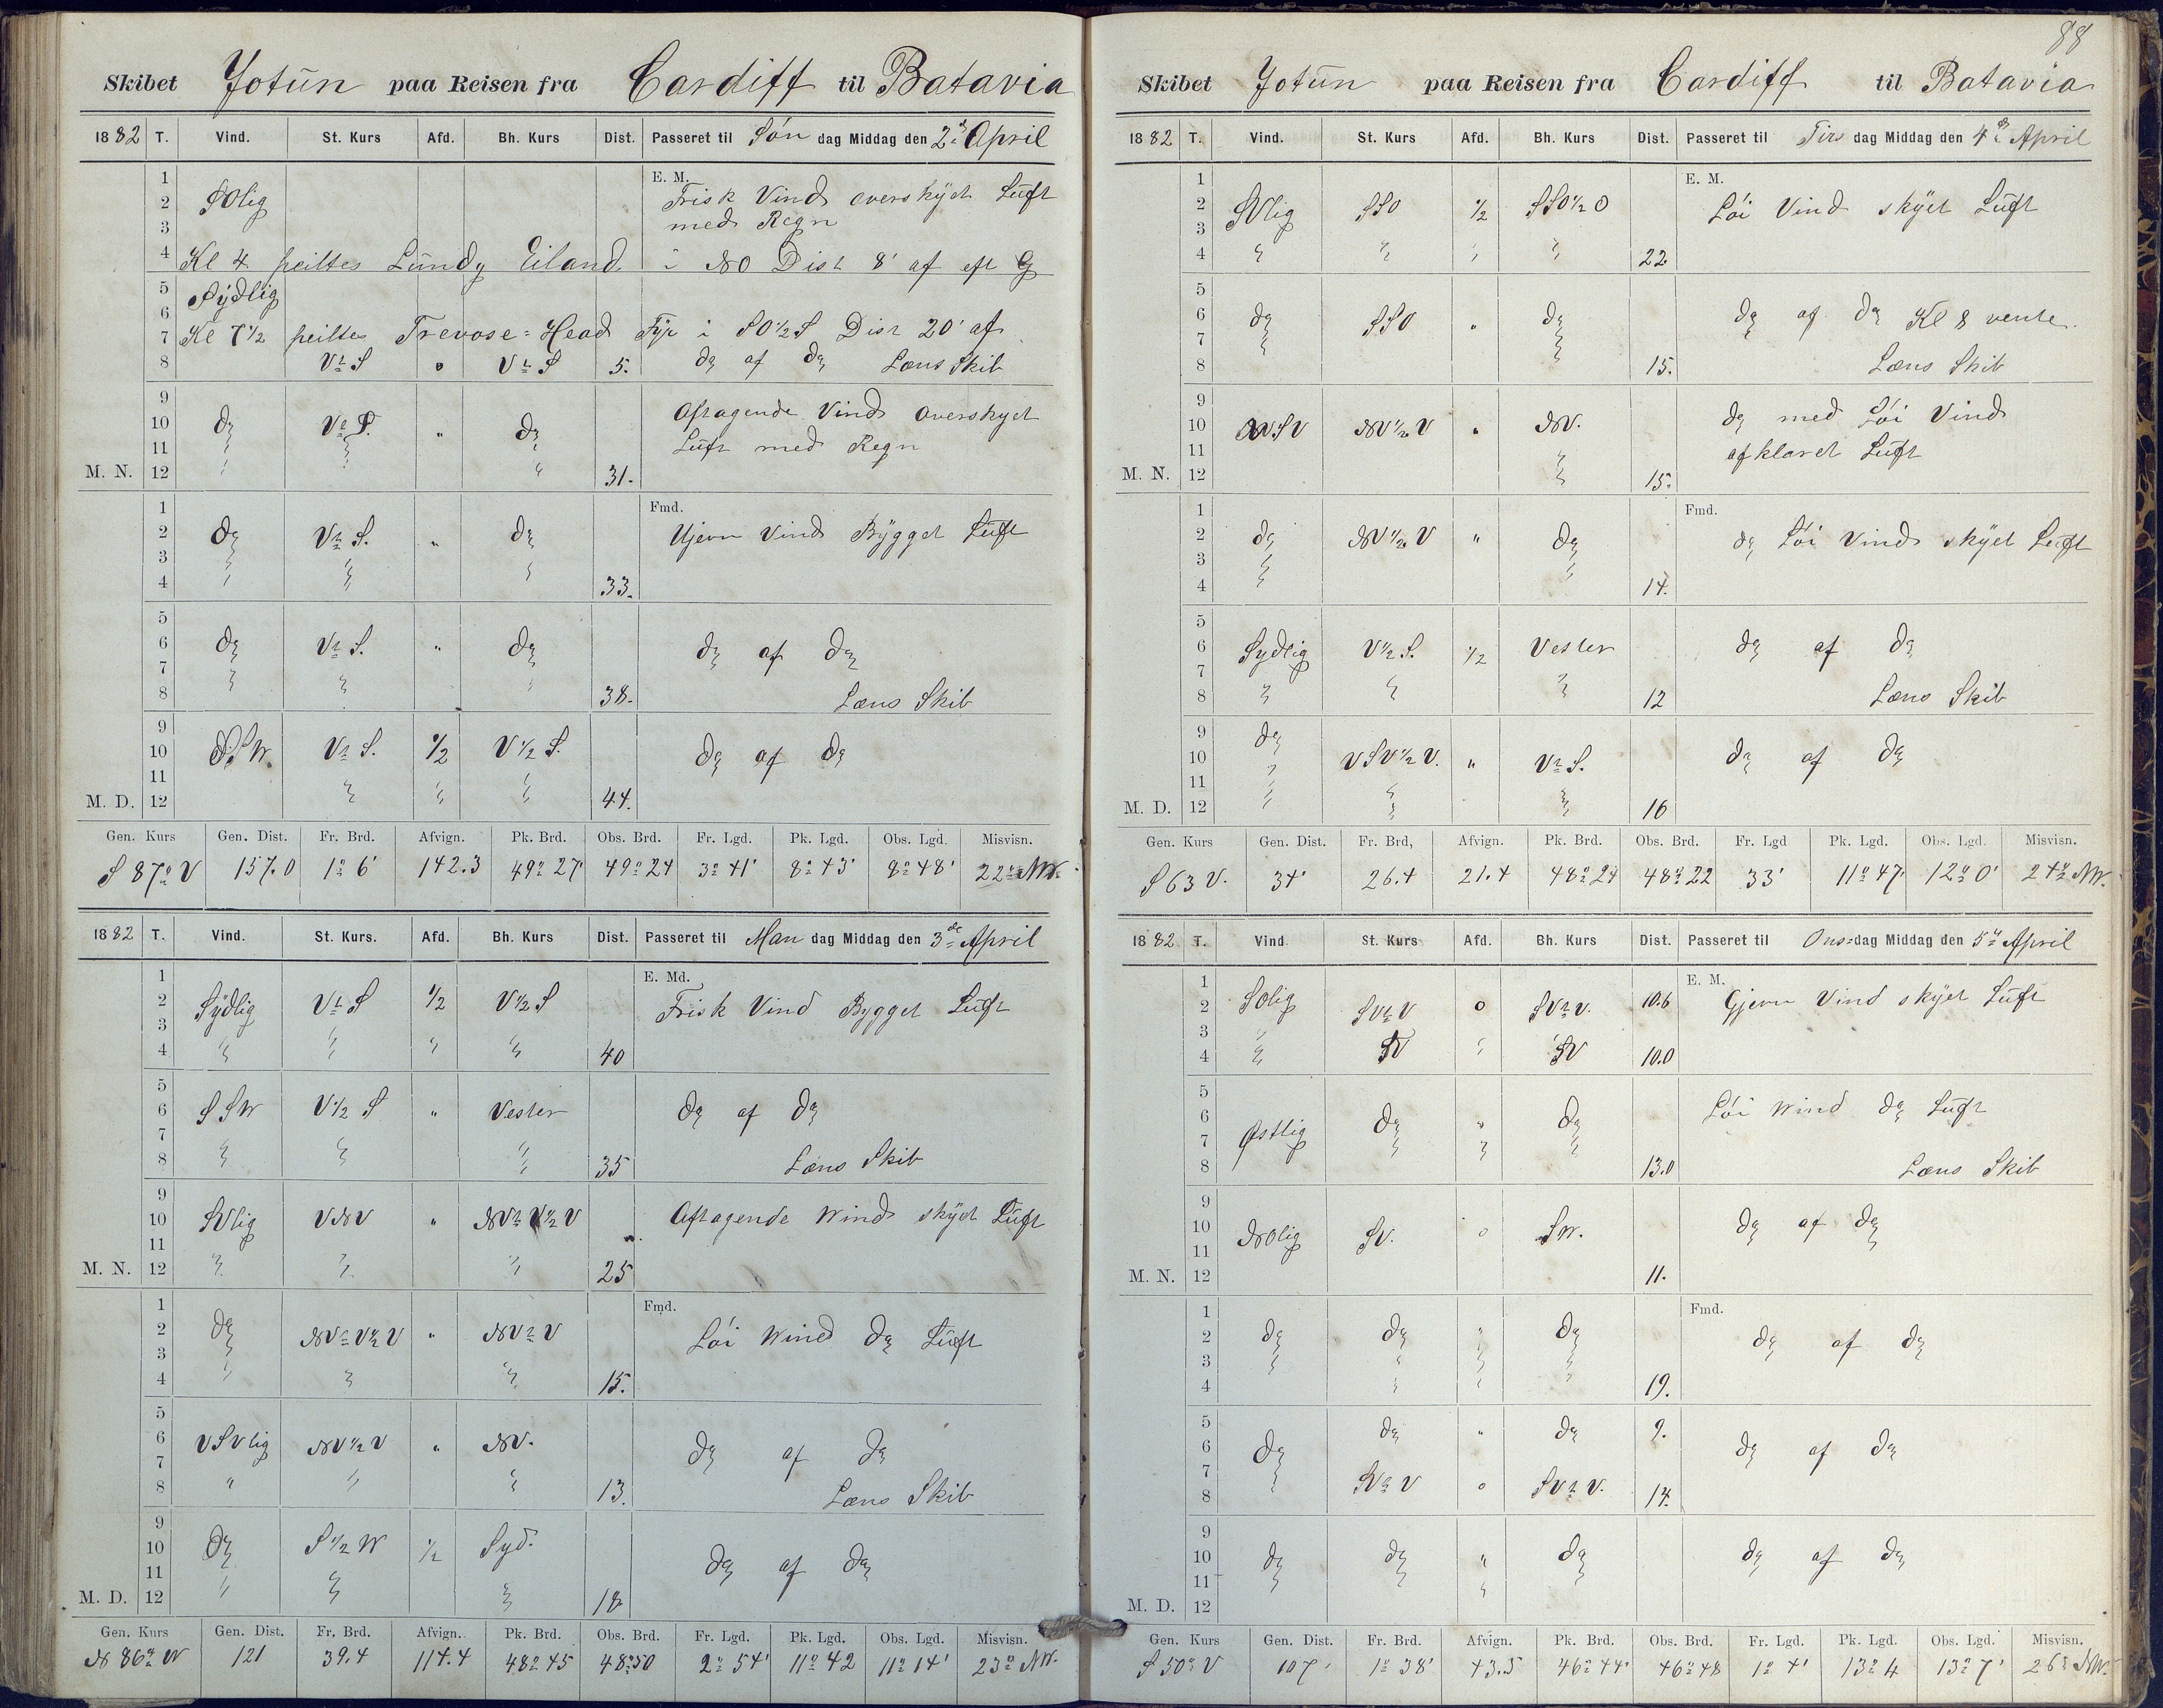 Skibet Jotün paa Reisen fra Cardiff til Batavia
1882 T. Vind. St. Kurs Afd. Bh. Kurs Dist. Passeret til Søn dag Middag den 2d April
1 E. M.
2 SOlig Frisk Vind overskÿet Lüft
3 med Regn
4 Kl 4 peiltes Lündy Eiland i NO Dist 8' af eft G
5 Sÿdlig
6
7 Kl 7 1/2 peiltes Trevose=Head Fÿr i SO 1/2 S Dist 20' af
8 Vt S 0 Vt S 5. do af do Læns Skib
9
10 do Vt S. " do Aftagende Vind Overskyet
11 Lüft med Regn
M. N. 12 31.
1 Fmd.
2 do Vt S. " do Ujevn Vind Bÿgget Lüft
3
4 33.
5
6 do Vt S. " do do af do
7
8 38. Læns Skib
9
10 S.S.W. Vt S. 1/2 V 1/2 S. do af do
11
M. D. 12 44.
Gen. Kurs Gen. Dist. Fr. Brd. Afvign. Pk. Brd. Obs. Brd. Fr. Lgd. Pk. Lgd. Obs. Lgd. Misvisn.
S 87° V 157.0 1° 6' 142.3 49° 27' 49° 24 3° 41' 8° 43' 8° 48' 22° NW.
1882 T. Vind. St. Kurs. Afd. Bh. Kurs Dist. Passeret til Man dag Middag den 3de April
1 E. Md.
2 Sÿdlig Vt S 1/2 V 1/2 S Frisk Vind Bygget Lüft
3
4 " " " " 40
5
6 S SW V 1/2 S " Vester do af do
7
8 " " " 35 Læns Skib
9
10 SVlig VNV " NVt V 1/2 V Aftagende Wind skÿet Lüft
11
M. N. 12 " " " 25
1 Fmd.
2 do NVt V 1/2 V " NVt V Löi Wind do Lüft
3
4 15.
5
6 VSVlig NV 1/2 V " NV. do af do
7
8 " " " 13. Læns Skib
9
10 do S 1/2 W 1/2 Syd. do af do
11
M. D. 12 18
Gen. Kurs Gen. Dist. Fr. Brd. Afvign. Pk. Brd. Obs. Brd. Fr. Lgd. Pk. Lgd. Obs. Lgd. Misvisn.
N 86° W 121 39.4 114.4 48° 45 48° 50 2° 54' 11° 42 11° 14' 23° NW.
88
Skibet Jotün paa Reisen fra Cardiff til Batavia
1882 T. Vind. St. Kurs Afd. Bh. Kurs Dist. Passeret til Tirs dag Middag den 4de April
1 E. M.
2 SVlig SSO 1/2 SSO 1/2 O Löi Vind skÿet Lüft
3
4 " " " " 22
5
6 do SSO " do do af do Kl 8 vente.
7
8 15. Læns Skib
9
10 VSV NV 1/2 V " NV. do med Löi Vind
11 afklaret Lüft
M. N. 12 15.
1 Fmd.
2 do NV 1/2 V " do do Löi Vind skÿet Lüft
3
4 14.
5
6 Sydlig V 1/2 S. 1/2 Vester do af do
7
8 " " " 12 Læns Skib
9 do
10 VSV 1/2 V. " Vt S. do af do
11
M. D. 12 16
Gen. Kurs Gen. Dist. Fr. Brd, Afvign. Pk. Brd. Obs. Brd. Fr. Lgd Pk. Lgd. Obs. Lgd. Misvisn.
S 63 V. 34' 26.4 21.4 48° 24 48° 22 33' 11° 47 12° 0' 24° NW.
1882 T. Vind St. Kurs Afd. Bh. Kurs Dist. Passeret til Onsdag Middag den 5te April
1 E. M.
2 SOlig SVt V 0 SVt V. 10.6 Gjevn Vind skÿet Lüft
3
4 " SV " SV 10.0
5
6 do " do Löi Wind do Lüft
7 Østlig
8 13.0 Læns Skib
9
10 NOlig SV. 0 SW. do af do
11
M. N. 12 11.
1 Fmd.
2 do do " do do af do
3
4 19.
5 do " do 9.
6 do do af do
7
8 SVt V 0 SVt V. 14.
9
10 do do " do do af do
11
M. D. 12
Gen. Kurs Gen. Dist. Fr. Brd. Afvign. Pk. Brd. Obs. Brd. Fr. Lgd. Pk. Lgd. Obs. Lgd. Misvisn.
S 50° V 107' 1° 38' 43.5 46° 44' 46° 48 1° 4' 13° 4 13° 7' 26° NW.